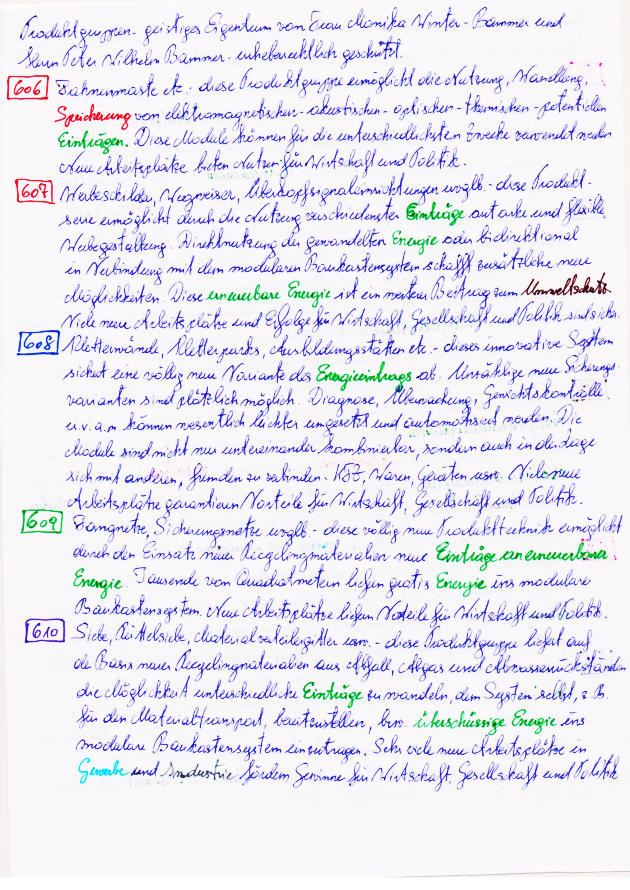 Produktgruppen - geistiges Eigentum von Frau Monika Winter-Bammer und
Herrn Peter Wilhelm Bammer - urheberrechtlich geschützt.
606 Fahnenmaste etc. - diese Produktgruppe ermöglicht die Nutzung, Wandlung,
Speicherung von elektromagnetischen - akustischen - optischen - thermischen - potentiellen
Einträgen. Diese Module können für die unterschiedlichsten Zwecke verwendet werden
Neue Arbeitsplätze bieten Nutzen für Wirtschaft und Politik.
607 Werbeschilder, Wegweiser, Überkopfsignaleinrichtungen vglb. - diese Produkt-
serie ermöglicht durch die Nutzung verschiedenster Einträge autarke und flexible
Werbegestaltung. Direktnutzung der gewandelten Energie oder bidirektional
in Verbindung mit dem modularen Baukastensystem schafft zusätzliche neue
Möglichkeiten. Diese erneuerbare Energie ist ein weiterer Beitrag zum Umweltschutz.
Viele neue Arbeitsplätze und Erfolge für Wirtschaft, Gesellschaft und Politik sind sicher.
608 Kletterwände, Kletterparks, Ausbildungsstätten etc. - dieses innovative System
sichert eine völlig neue Variante des Energieeintrags ab. Unzählige neue Sicherungs-
varianten sind plötzlich möglich. Diagnose, Überwachung, Gewichtskontrolle
u.v.a.m können wesentlich leichter umgesetzt und automatisiert werden. Die
Module sind nicht nur untereinander kombinierbar, sondern auch in der Lage
sich mit anderen, fremden zu verbinden. KFZ, Waren, Geräten usw. Viele neue
Arbeitsplätze garantieren Vorteile für Wirtschaft, Gesellschaft und Politik.
609 Fangnetze, Sicherungsnetze vglb. - diese völlig neue Produkttechnik ermöglicht
durch den Einsatz neuer Recyclingmaterialien neue Einträge an erneuerbarer
Energie. Tausende von Quadratmetern liefern gratis Energie ins modulare
Baukastensystem. Neue Arbeitsplätze liefern Vorteile für Wirtschaft und Politik.
610 Siebe, Rüttelsiebe, Materialverteilergitter usw. - diese Produktgruppe liefert auf
der Basis neuer Recyclingmaterialien aus Abfall, Abgas und Abwasserrückständen
die Möglichkeit unterschiedliche Einträge zu wandeln, dem System selbst, z.B.
für den Materialtransport, bereitzustellen, bzw. überschüssige Energie ins
modulare Baukastensystem einzutragen. Sehr viele neue Arbeitsplätze in
Gewerbe und Industrie fördern Gewinne für Wirtschaft, Gesellschaft und Politik